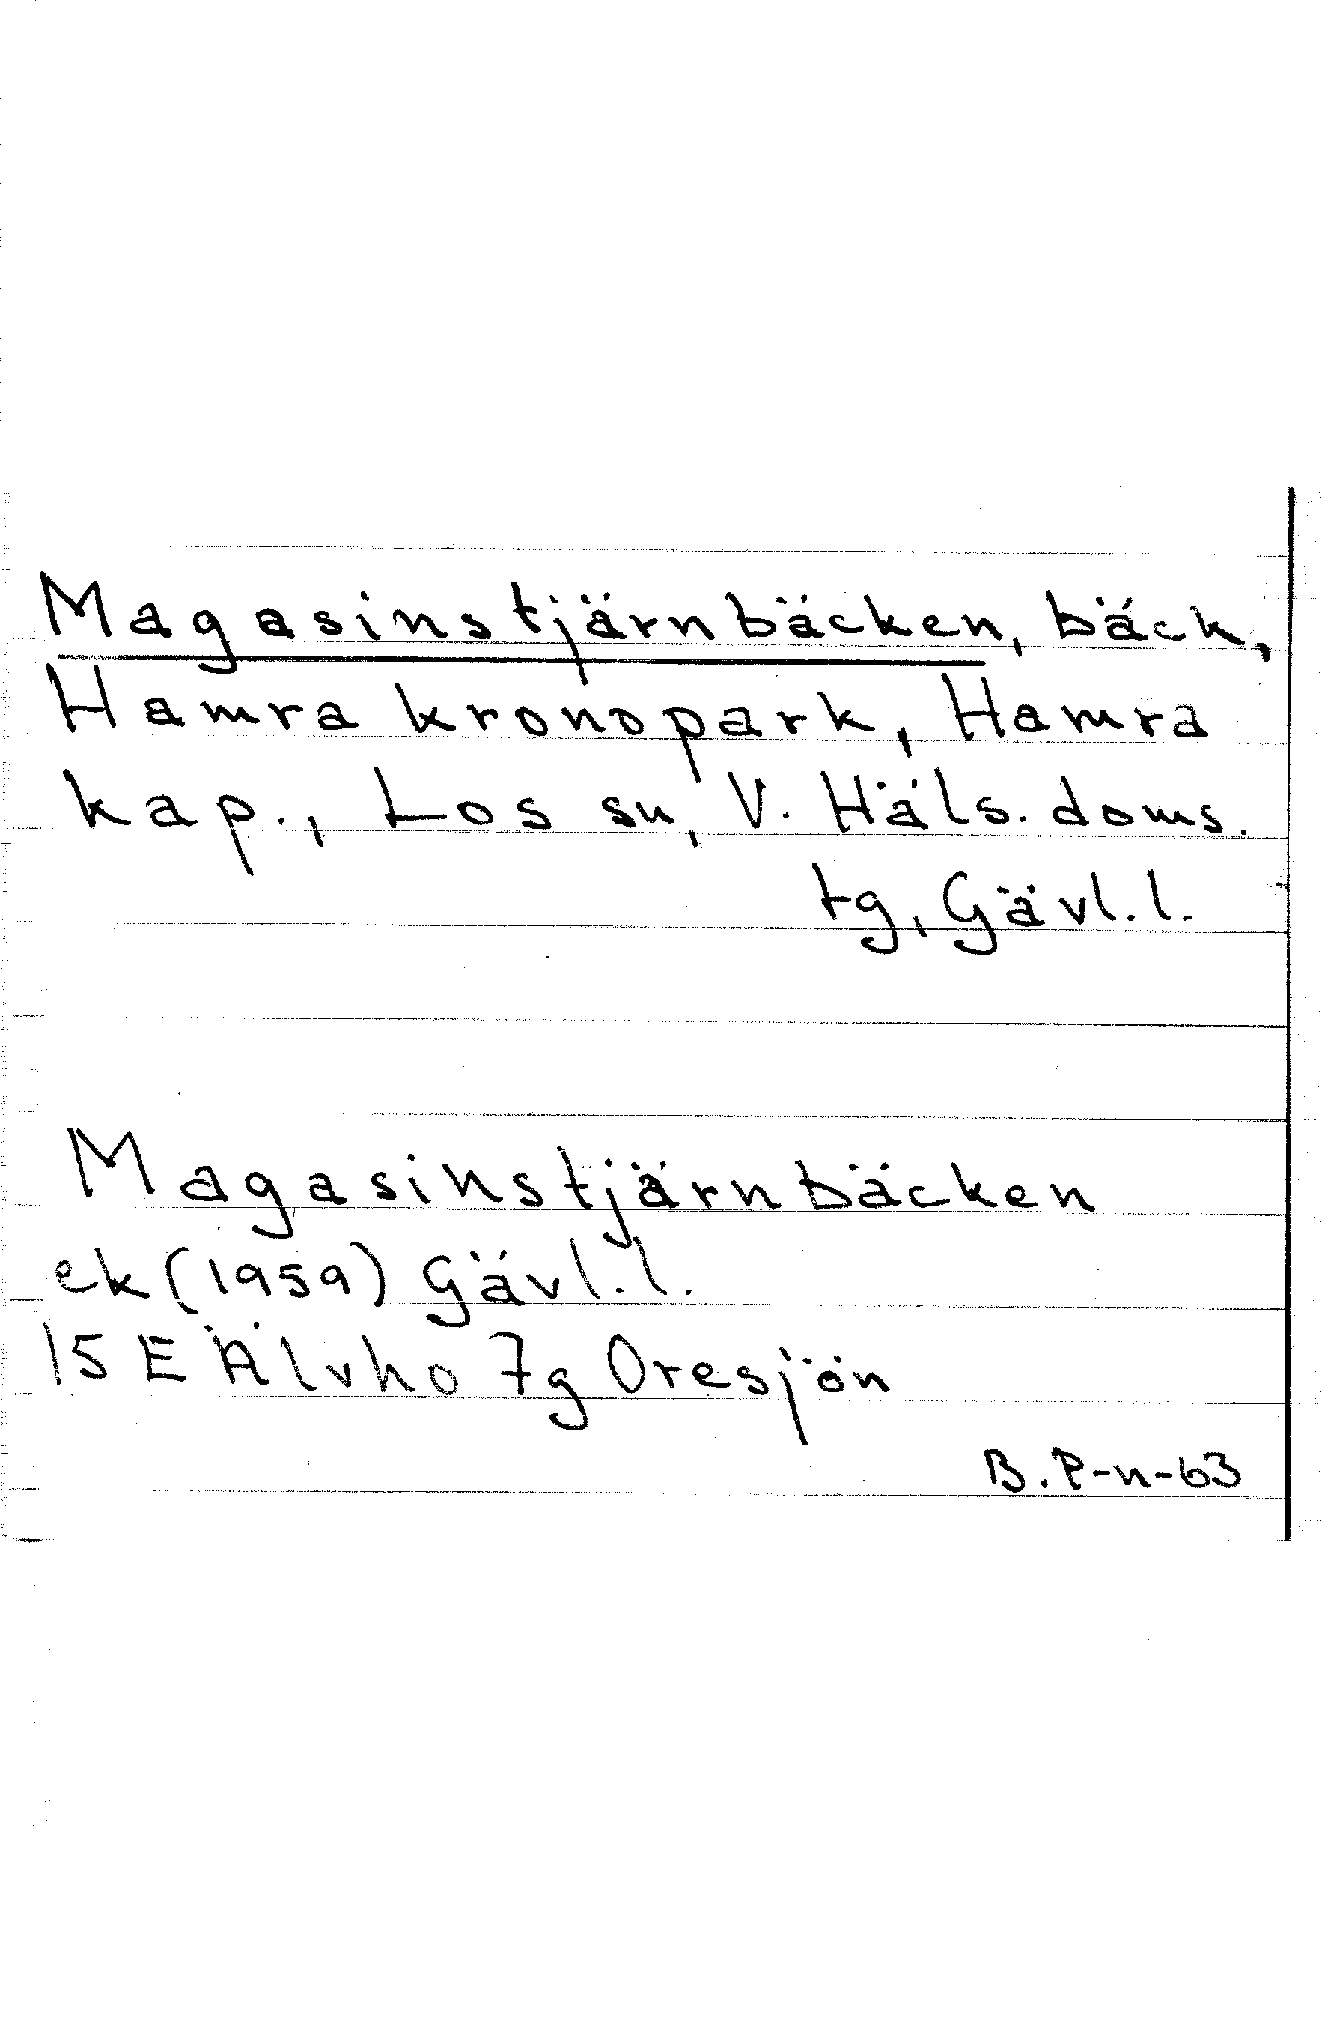 Magasinstjärnbäcken, bäck,
Hamra kronopark, Hamra
kap., Los sn, V. Häls. doms.
tg, Gävl. l.
Magasinstjärnbäcken
ek (1959) Gävl. l.
15 E Älvho 7g Oresjön
B. P-n-63